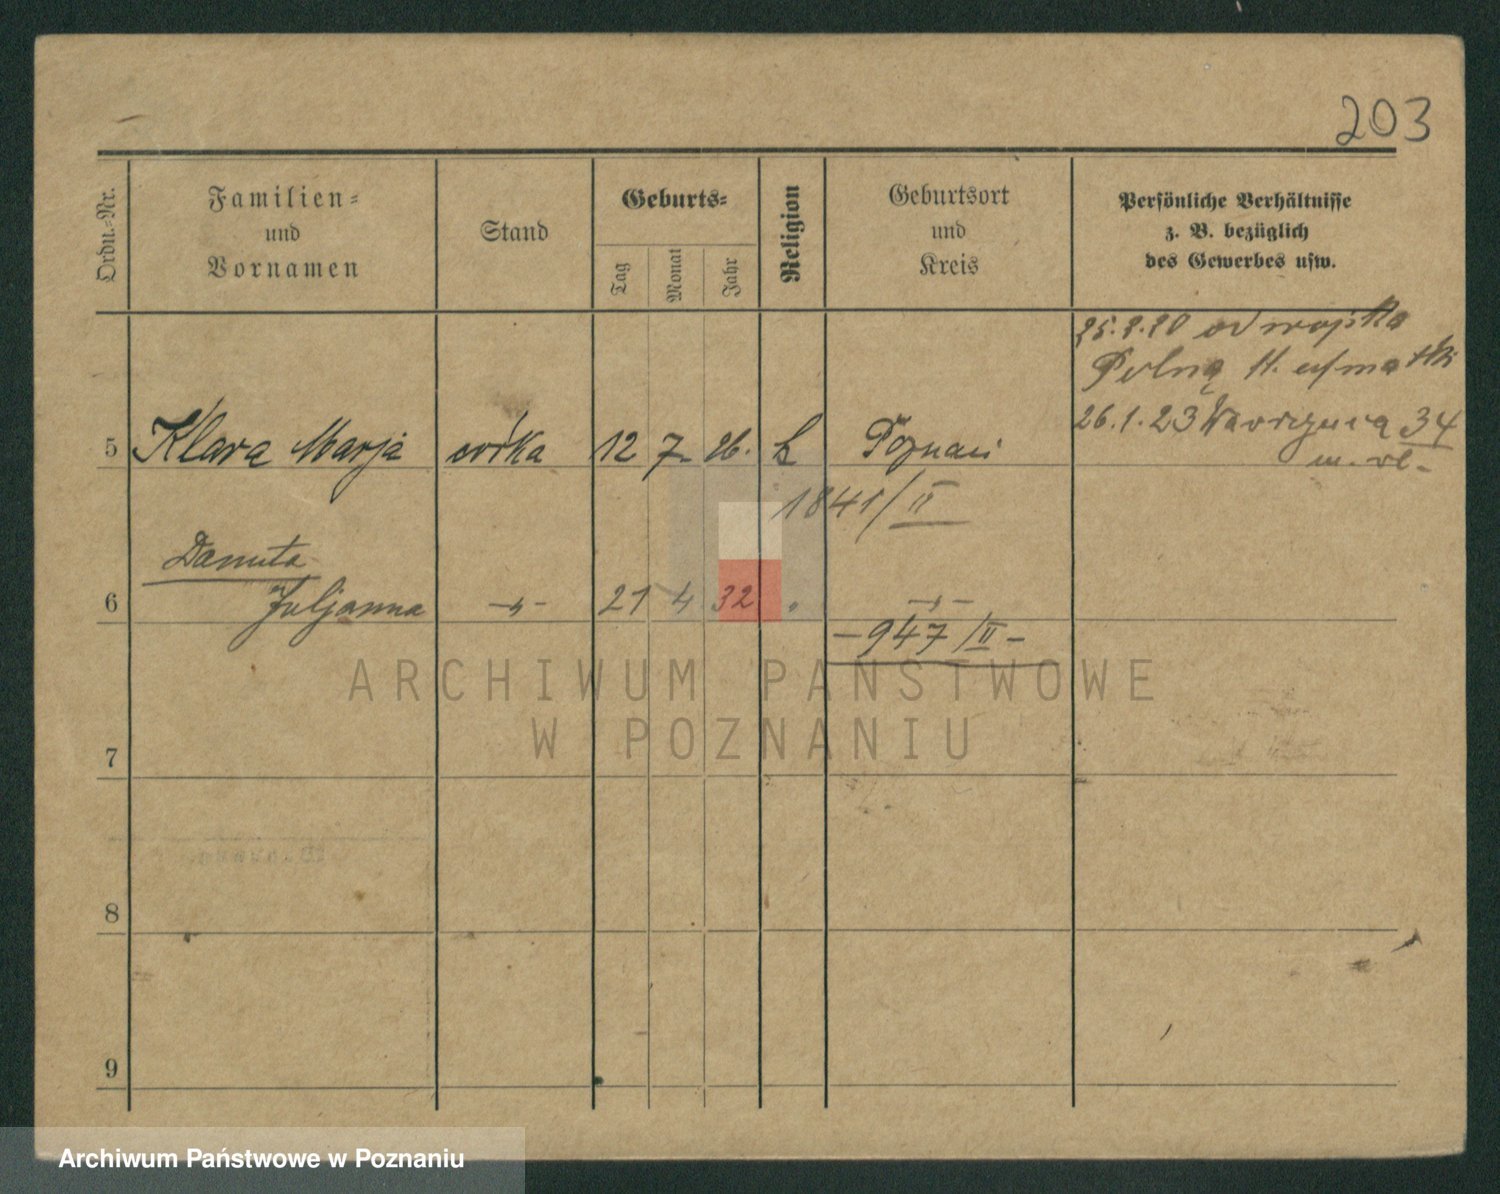 203
Ordn.-Nr.
Familien-
und
Vornamen
Stand
Geburts-
Tag
Monat
Jahr
Religion
Geburtsort
und
Kreis
Persönliche Verhältnisse
z. B. bezüglich
des Gewerbes usw.
od wojska
Polną 11. u/matki
26.1.23 Wawrzyńca 34
5 Klara Marja córka 12 7. 26. k Poznań
1841/II
Danuta
6 Juljanna -„- 21 4 32 „ -„-
-947/II-
ARCHIWUM PAŃSTWOWE
W POZNANIU
7
8
9
Archiwum Państwowe w Poznaniu